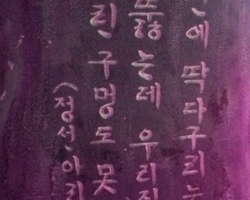 에 딱다구리는
뚫는데 우리집
린 구멍도 못
(정선아리